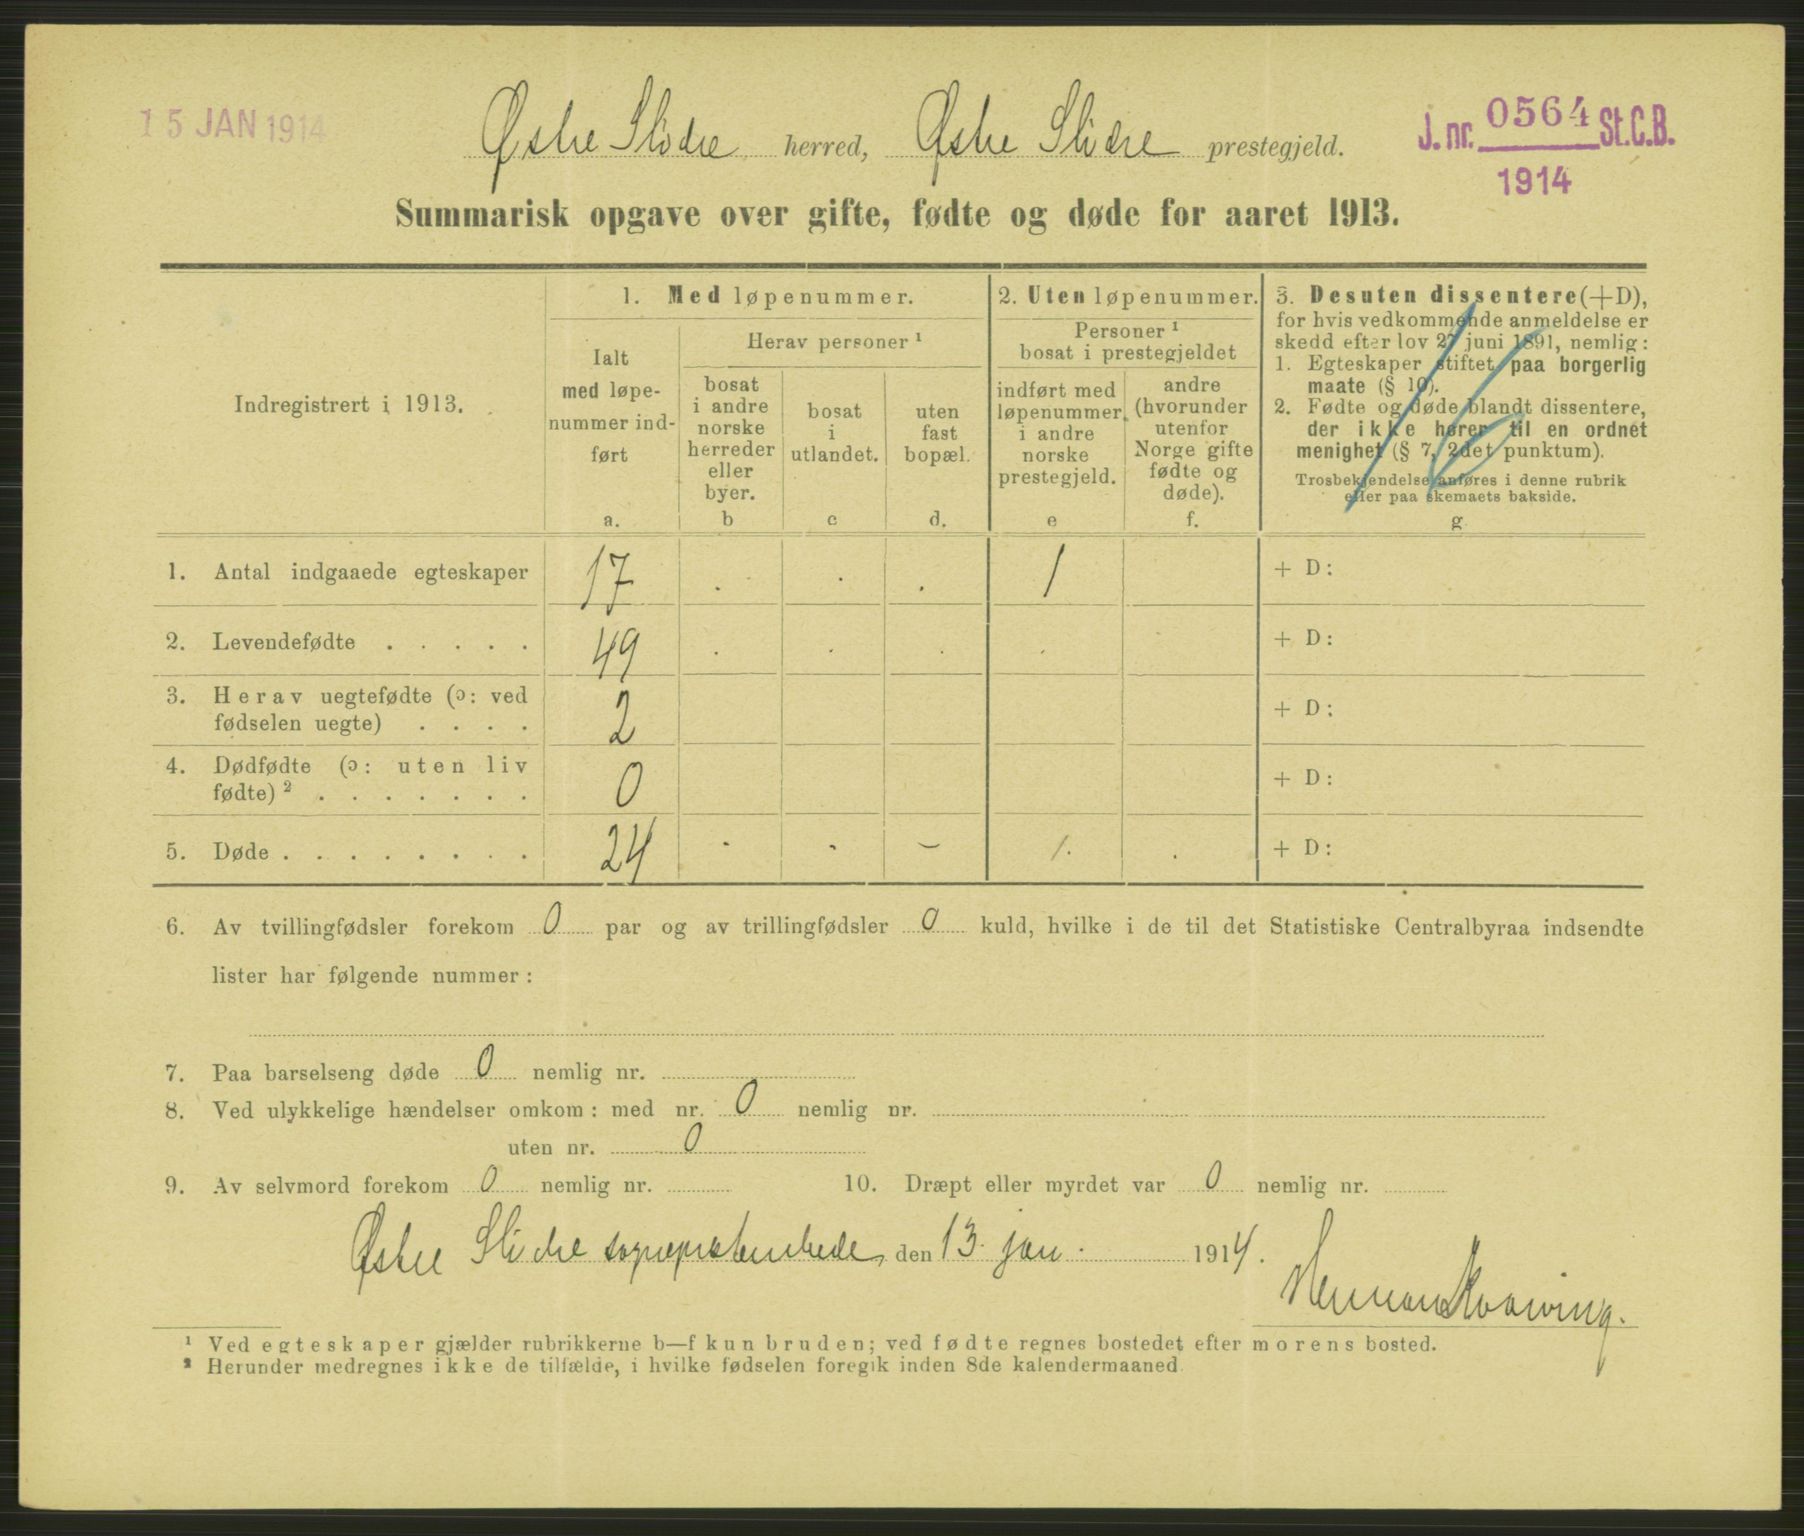 15 JAN 1914
Østre Slidre herred, Østre Slidre prestegjeld.
J. nr. 0564 St.C.B.
1914
Summarisk opgave over gifte, fødte og døde for aaret 1913.
Indregistrert i 1913.
1. Med løpenummer.
Ialt
med løpe-
nummer ind-
ført
a.
Herav personer ¹
bosat
i andre
norske
herreder
eller
byer.
b
bosat
i
utlandet.
c
uten
fast
bopæl.
d.
2. Uten løpenummer.
Personer ¹
bosat i prestegjeldet
indført med
løpenummer
i andre
norske
prestegjeld.
e
andre
(hvorunder
utenfor
Norge gifte
fødte og
døde).
f.
3. Desuten dissentere (+D),
for hvis vedkommende anmeldelse er
skedd efter lov 27 juni 1891, nemlig:
1. Egteskaper stiftet paa borgerlig
maate (§ 10).
2. Fødte og døde blandt dissentere,
der ikke hører til en ordnet
menighet (§ 7, 2det punktum).
Trosbekjendelse anføres i denne rubrik
eller paa skemaets bakside.
g
1. Antal indgaaede egteskaper 17 . . . 1 + D:
2. Levendefødte . . . . . 49 . . . . + D:
3. Herav uegtefødte (ɔ: ved
fødselen uegte) . . . . 2 + D:
4. Dødfødte (ɔ: uten liv
fødte) ² . . . . . . . 0 + D:
5. Døde . . . . . . . . 24 . . - 1. . + D:
6. Av tvillingfødsler forekom 0 par og av trillingfødsler 0 kuld, hvilke i de til det Statistiske Centralbyraa indsendte
lister har følgende nummer:
7. Paa barselseng døde 0 nemlig nr.
8. Ved ulykkelige hændelser omkom: med nr. 0 nemlig nr.
uten nr. 0
9. Av selvmord forekom 0 nemlig nr. 10. Dræpt eller myrdet var 0 nemlig nr.
Østre Slidre sogneprestembede, den 13. jan. 1914.
Herman
¹ Ved egteskaper gjælder rubrikkerne b—f kun bruden; ved fødte regnes bostedet efter morens bosted.
² Herunder medregnes ikke de tilfælde, i hvilke fødselen foregik inden 8de kalendermaaned.